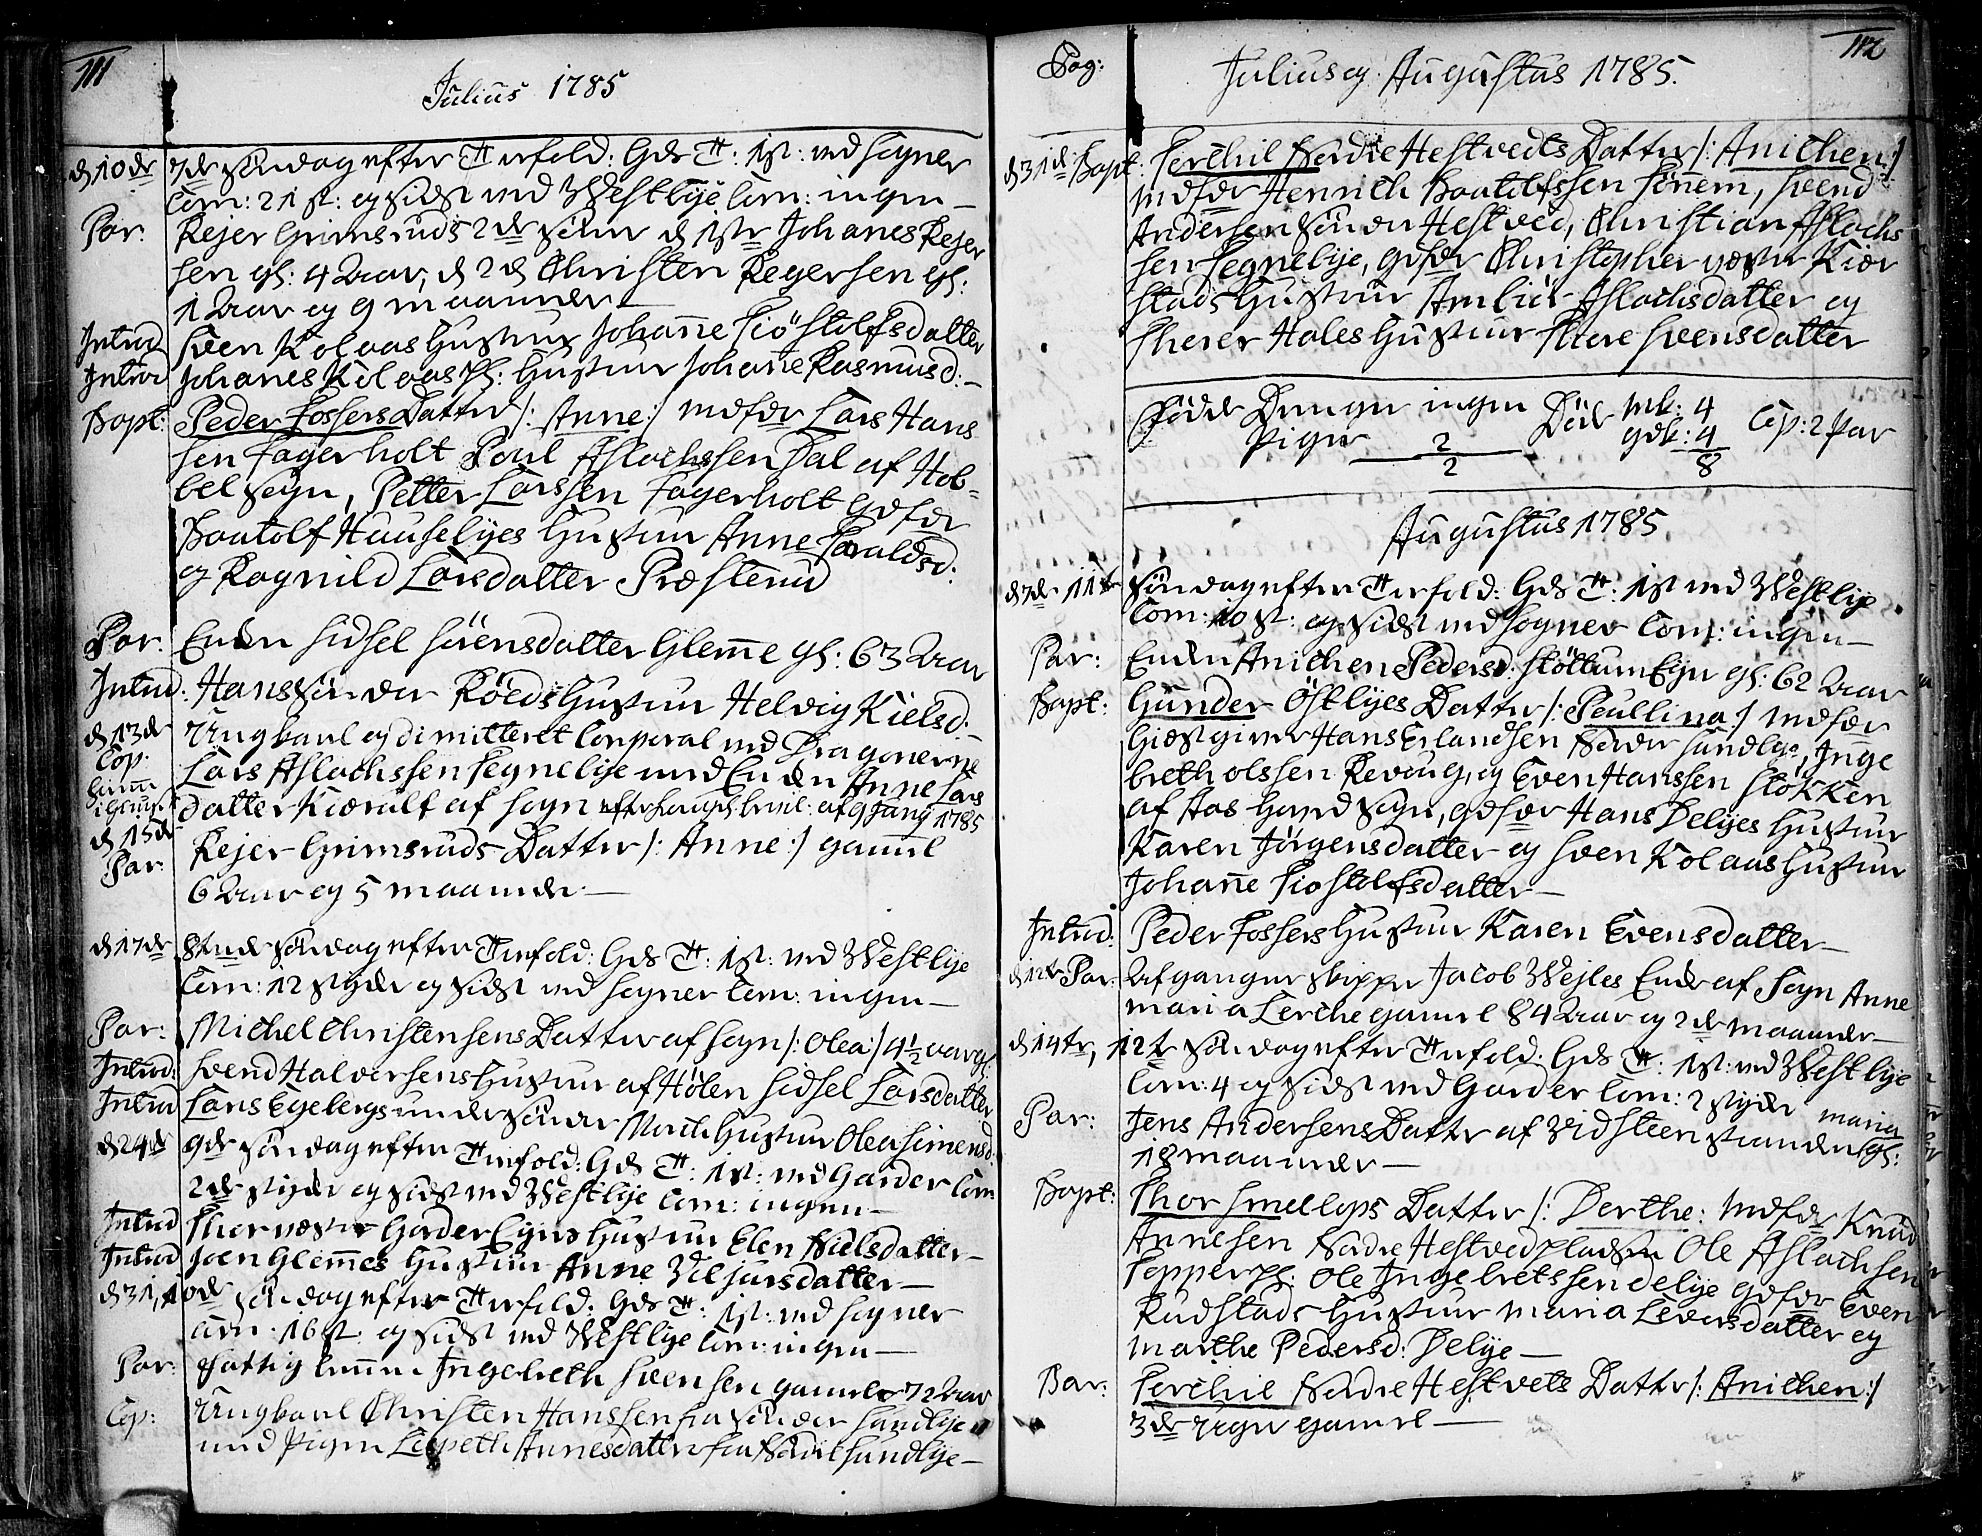 111
Julius 1785
d 10de 7de Søndag efter Trefold: Gds T: 1st: ved Sogner
Com: 21 st: og sidst ved Westbije Com: ingen
Par: Rejer Grimsruds 2de Sønner d 1ste Johanes Rejer
sen gl: 4 Aar, d 2d Christen Regersen gl:
1 Aar og 9 maaneder
Introd Sven Kolaas Hustrue Johanne Siöstolfsdatter
Introd Johanes Kolaas Pl: Hustrue Johane Rasmusd:
Bapt: Peder Fossers Datter /: Anne :/ Mdfdr Lars Hans
sen Fagerholt Poul Aslachssen Dal af Hob=
bel Sogn, Petter Larssen Fagerholt Qdfdr
Baatolf Hauselijes Hustrue Anne Haraldsd:
og Ragnild Larsdatter Præsterud
Par: Enken Sidsel Sörensdatter Glemme gl: 63 Aar
Introd: Hans Sönder Röeds Hustrue Helvig Kielsd:
d 13de Ungkarl og dimitteret Corporal ved Dragonerne
Cop: Lars Aslachssen Segnelije med Enken Anne Lars
datter Kierulf af Sogn efter 9 Janÿ 1785
d 15de
Par: Rejer Grimsruds Datter /: Anne :/ gammel
6 Aar og 5 maaneder
d 17de 8tende Søndag efter Trefold: Gds T: 1st: ved Westbije
Com: 12 stijker og sidst ved Sogner Com: ingen
Par: Michel Christensens Datter af Sogn /: Olea :/ 4½ aar gl:
Introd: Svend Halversens Hustrue af Hölen Sidsel Larsdatter
Introd Lars Egebergs under Sönder Hustrue Olea Simensd:
d 24de 9de Søndag efter Trefold: Gds T: 1st: ved Garder Com
2de stijker og sidst ved Westbije Com: ingen
Introd Thor vester Garder Eijers Hustrue Elen Nielsdatter
Introd Joen Glemmes Hustrue Anne Viljarsdatter
d 31, 10de Søndag efter Trefold: Gds T: 1st: ved Sogner
Com: 16 st: og sidst ved Westbije Com: ingen
Par: Fattig Lem Ingebreth Svensen gammel 72 Aar
Cop: Ungkarl Christen Hanssen fra Sönder Sundbije
med Pigen Lispeth Annesdatter fra Nordre Sundbije
Pag: Julius og Augustus 1785. 112
d 31d: Bapt: Terchil Nordre Hestvedts Datter /: Anichen :/
Mdfdr Henrich Baatolfssen Sönem, Svend
Andersen Sönder Hestved, Christian Aslachs
sen Segnelije, Qdfdr Christopher vester Kier
stads Hustrue Amborr Aslachsdatter og
Sherer Holes Hustrue Thore Svensdatter
Födde Drenge ingen Döde Mk: 4 Cop: 2 Par
Piger 2 Qdk: 4
2 8
Augustus 1785
d 7de 11te Søndag efter Trefold: Gds T: 1st ved Westbije
Com: 10 st: og sidst ved Sogner Com: ingen
Par: Enken Anichen Pedersd: Stöttum Eijer gl: 62 Aar
Bapt: Gunder Östbijes Datter /: Paullina :/ Mdfdr
Giestgiver Hans Erlandsen Norder Sundbije, Inge
breth olssen Revoug, og Even Hanssen Stökken
af Aas Hovedsogn, Qdfdr Hans Delijes Hustrue
Karen Jörgensdatter og Sven Kolaas Hustrue
Johanne Siostolfsdatter
Introd: Peder Fossers Hustrue Karen Evensdatter
d 12te Par: Afgangne Skipper Jacob Wejles Enke af Sogn Anne
maria Lerche gammel 84 Aar og 2de maaneder
d 14te, 12te Søndag efter Trefold: Gds T: 1st: ved Westbije
Com: 4 og sidst ved Garder Com: 2 stijker
Par: Jens Andersens Datter af Vidsteen stranden maria gl:
18 maaneder
Bapt: Thor Smellops Datter /: Derthe: Mdfdr Knud
Annesen Nordre Hestved pladsen Ole Aslachsen
Popper Pl: Ole Ingebretssen delije Qdfdr Even
Rudstads Hustrue maria Leversdatter og
marthe Pedersd: Delije
Par: Terchil Nordre Hestvets Datter /: Anichen :/
3de Uger gammel